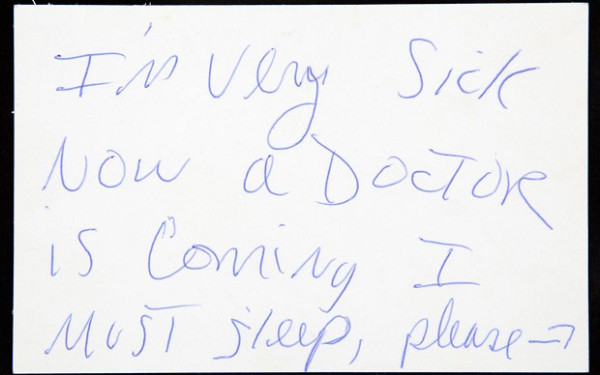 I'm very Sick
Now a Doctor
is Coming I
Must sleep, please→